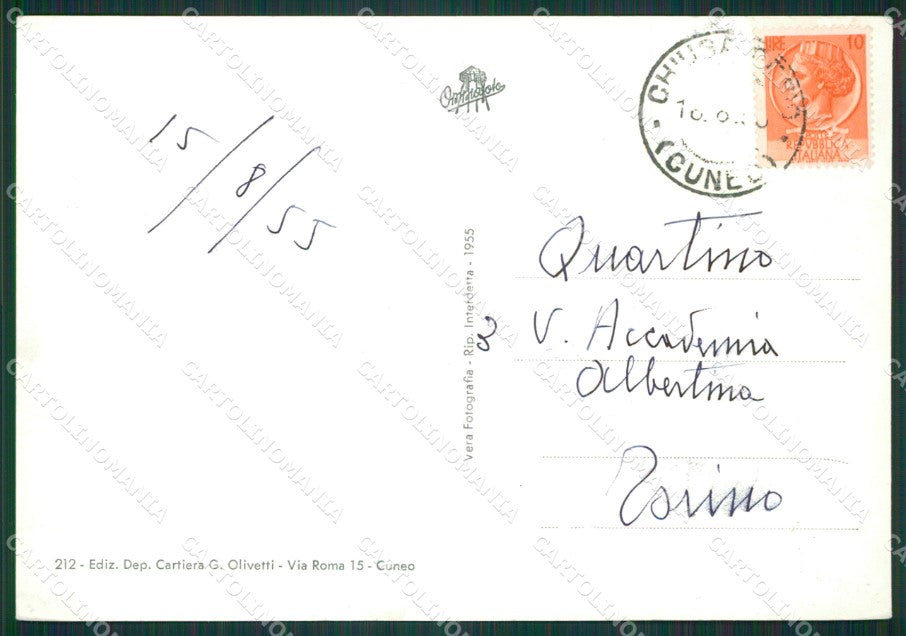 15/8/55
Ommofoto
CHIUSA
(CUNEO)
LIRE 10
REPVBBLICA
ITALIANA
Quartino
V. Accademia
Albertina
Torino
3
Vera Fotografia - Rip. Interdetta - 1955
212 - Ediz. Dep. Cartiera G. Olivetti - Via Roma 15 - Cuneo
CARTOLINOMANIA